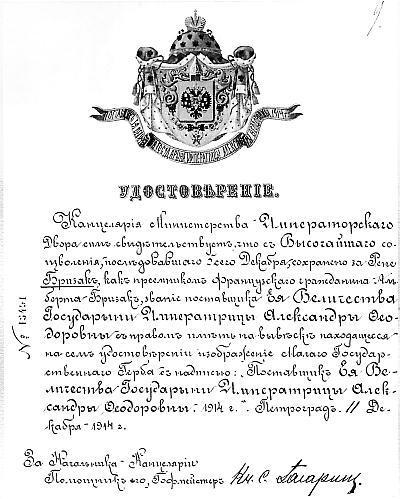 УДОСТОВѢРЕНІЕ.
Канцелярія Министерства Императорскаго
Двора симъ свидѣтельствуетъ, что съ Высочайшаго со-
изволенія, послѣдовавшаго 5сего Декабря, сохранено за Рене
Бризакъ, какъ преемникомъ французскаго гражданина Аль-
берта Бризакъ, званіе поставщика Ея Величества
Государыни Императрицы Александры Ѳео-
доровны съ правомъ имѣть на вывѣскѣ находящееся
на семъ удостовѣреніи изображеніе Малаго Государ-
ственнаго Герба съ надписью: „Поставщикъ Ея Ве-
личества Государыни Императрицы Алек-
сандры Ѳеодоровны. 1914 г." Петроградъ. 11 Де-
кабря 1914 г.
№ 13491
За Начальника Канцеляріи
Помощникъ его, Гофмейстеръ Кн. С. Гагаринъ